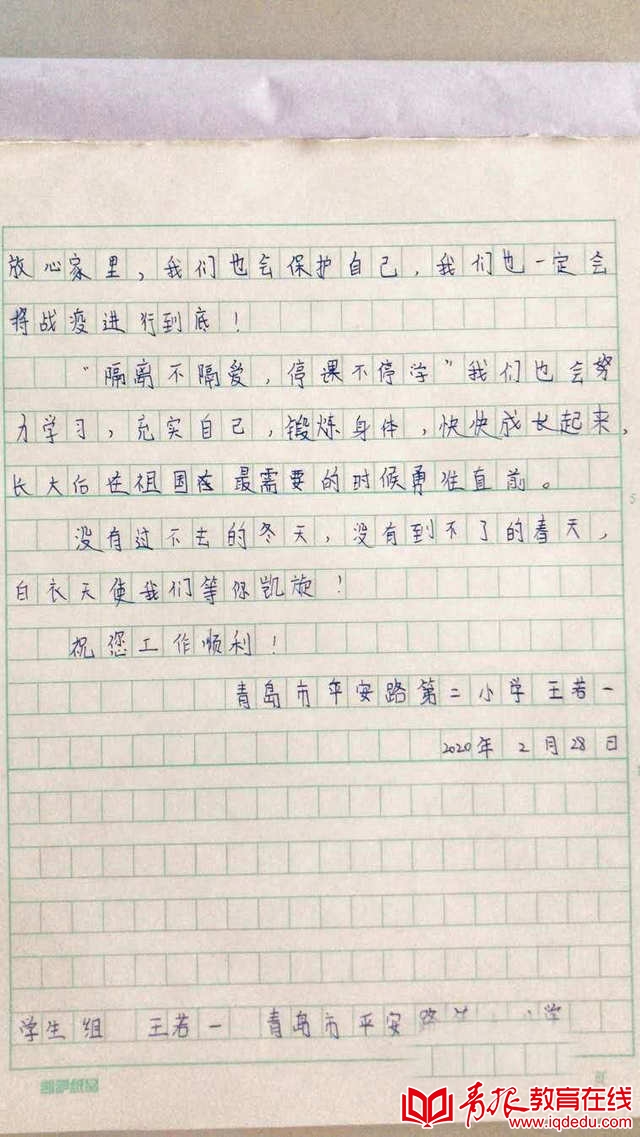 放心家里，我们也会保护自己，我们也一定会
将战疫进行到底！
“隔离不隔爱，停课不停学”我们也会努
力学习，充实自己，锻炼身体，快快成长起来，
长大后在祖国在最需要的时候勇往直前。
没有过不去的冬天，没有到不了的春天，
白衣天使我们等你凯旋！
祝您工作顺利！
青岛市平安路第二小学王若一
2020年2月28日
学生组 王若一 青岛市平安路 小学
青报教育在线
www.iqdedu.com